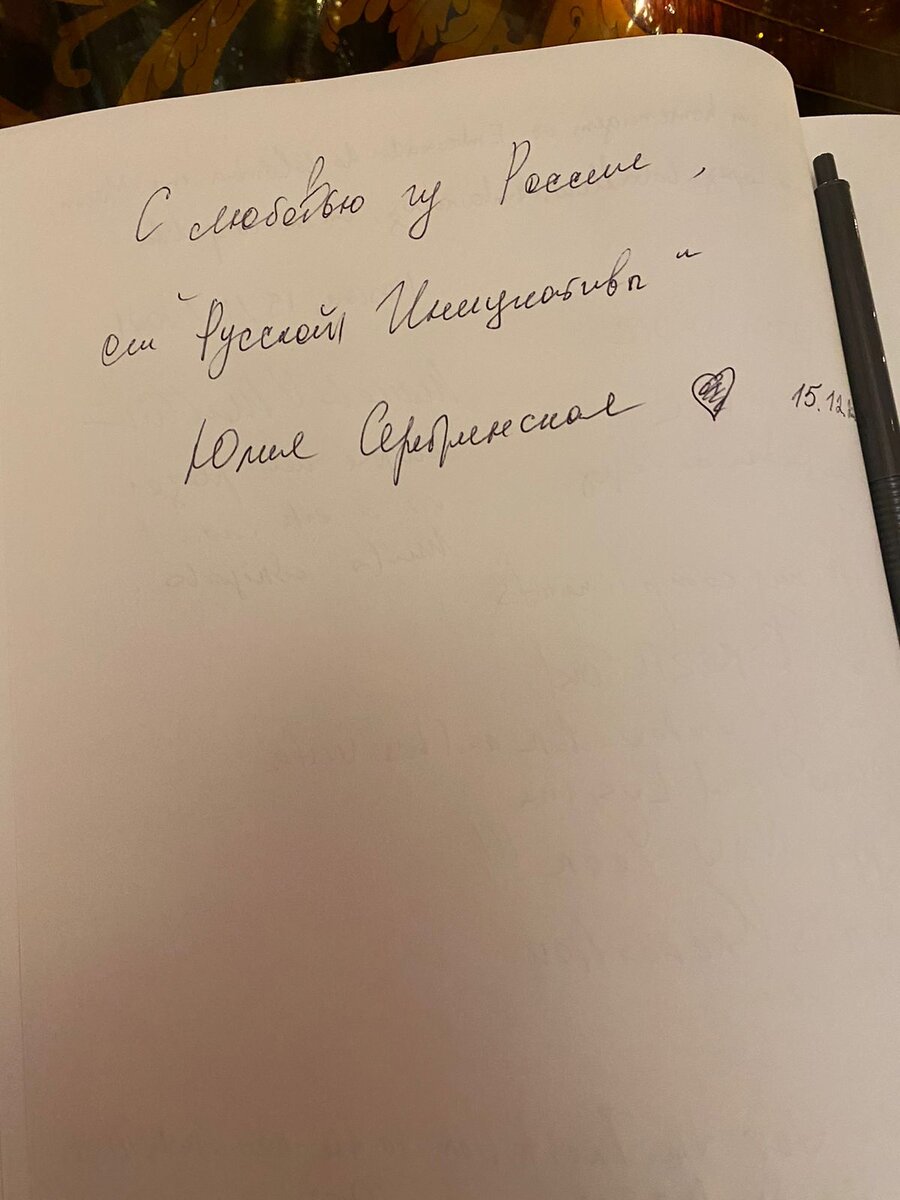 С любовью из России,
от "Русской Инициативы"
Юлия Серебренская 15.12.